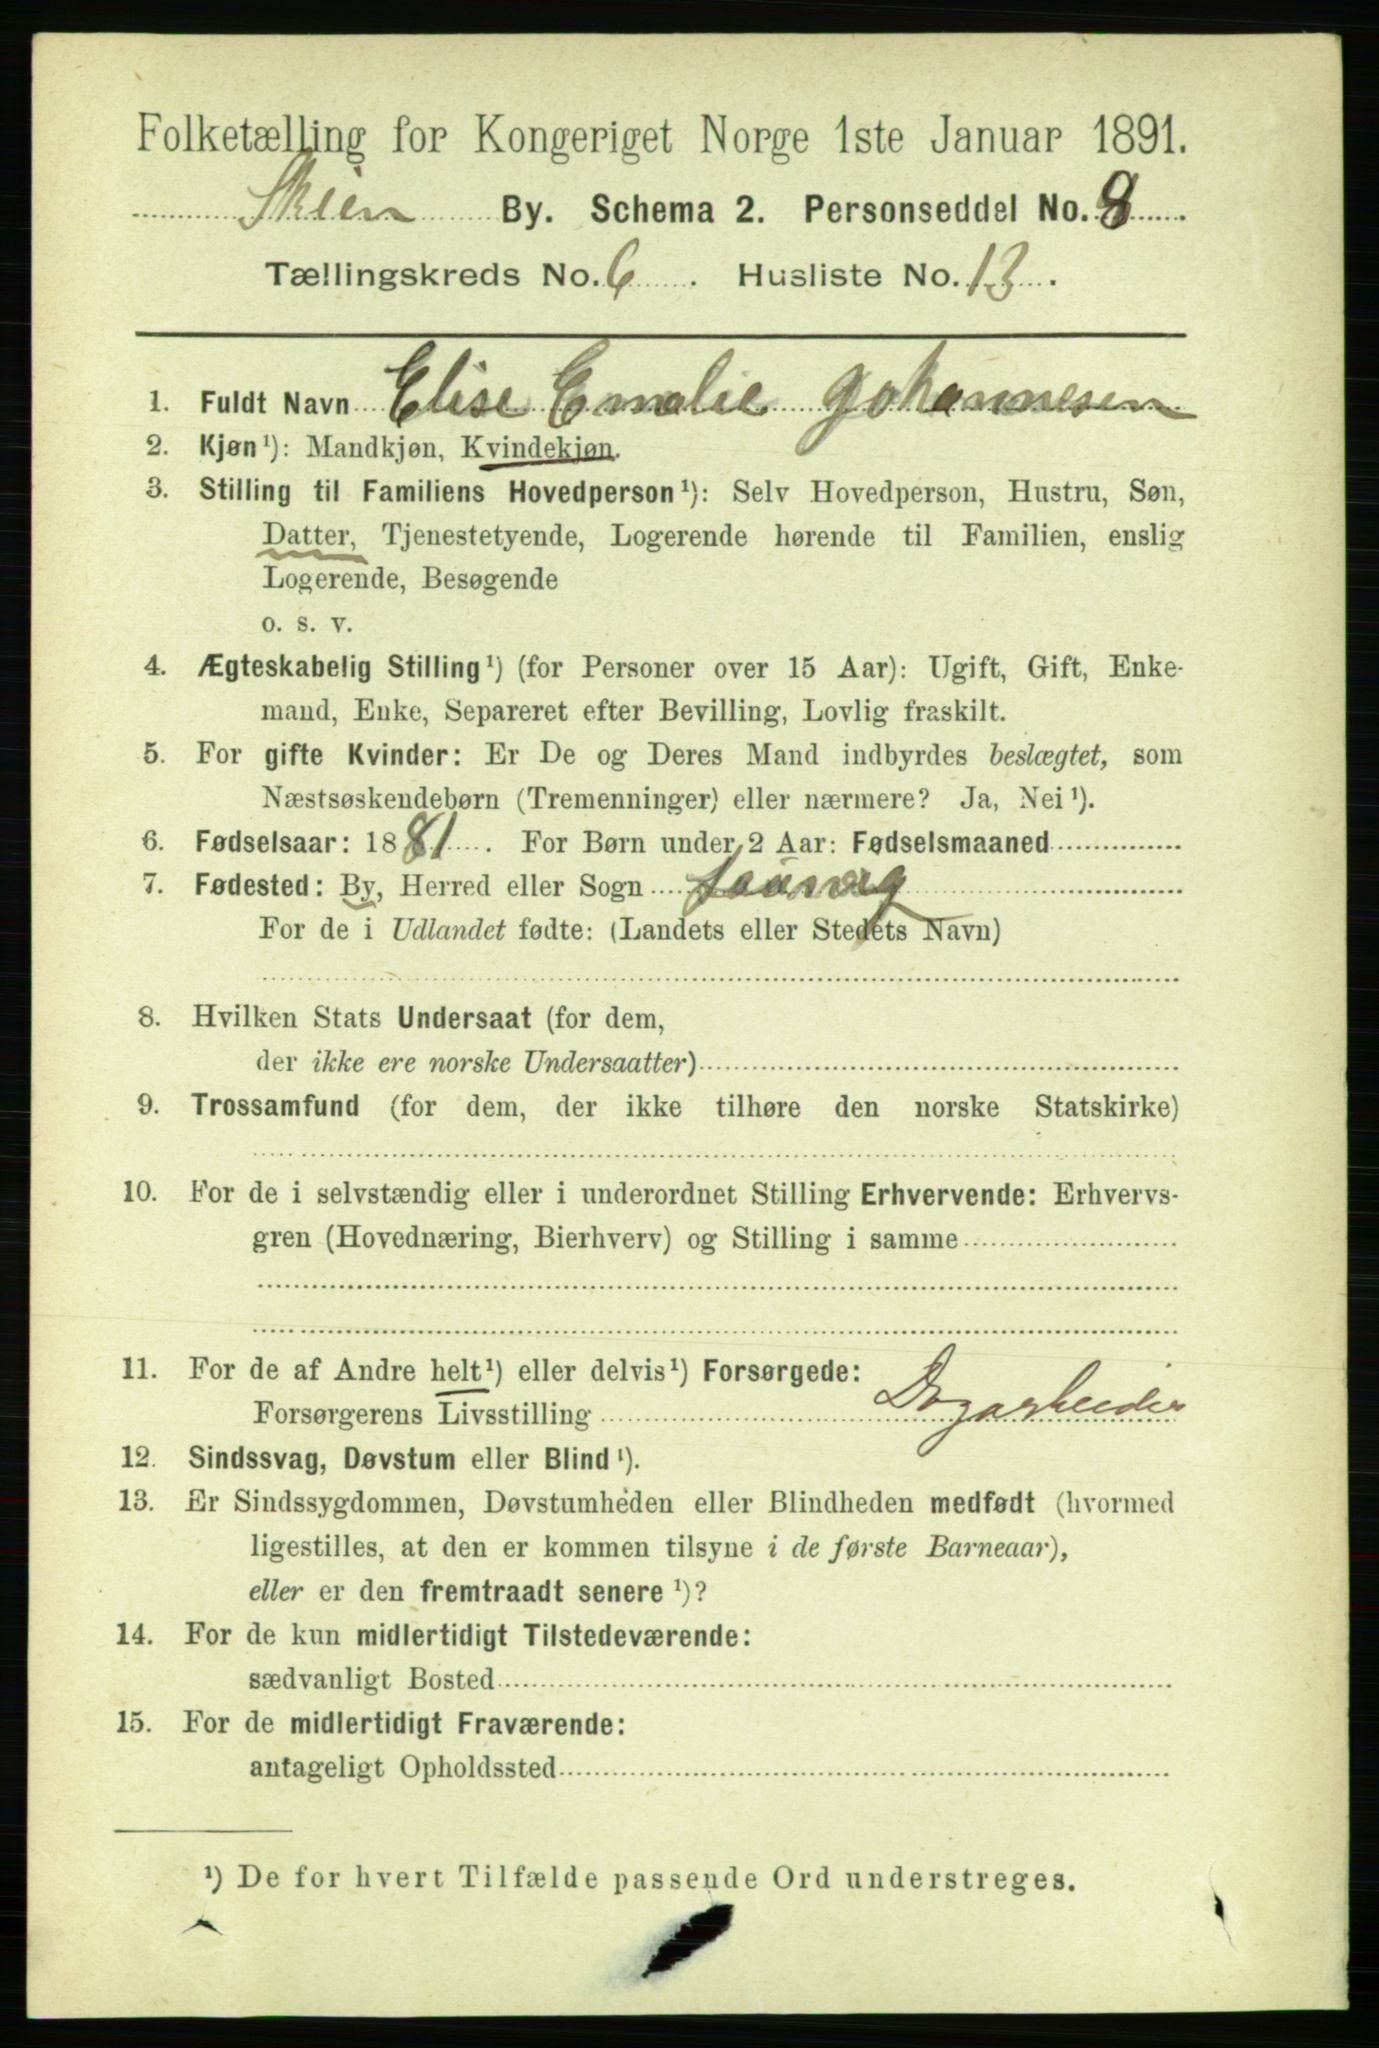 Folketælling for Kongeriget Norge 1ste Januar 1891.
Skien By. Schema 2. Personseddel No. 8
Tællingskreds No. 6. Husliste No. 13.
1. Fuldt Navn Elise Emalie Johannesen
2. Kjøn¹): Mandkjøn, Kvindekjøn.
3. Stilling til Familiens Hovedperson¹): Selv Hovedperson, Hustru, Søn,
Datter, Tjenestetyende, Logerende hørende til Familien, enslig
Logerende, Besøgende
o. s. v.
4. Ægteskabelig Stilling¹) (for Personer over 15 Aar): Ugift, Gift, Enke-
mand, Enke, Separeret efter Bevilling, Lovlig fraskilt.
5. For gifte Kvinder: Er De og Deres Mand indbyrdes beslægtet, som
Næstsøskendebørn (Tremenninger) eller nærmere? Ja, Nei¹).
6. Fødselsaar: 1881. For Børn under 2 Aar: Fødselsmaaned
7. Fødested: By, Herred eller Sogn Laurvig
For de i Udlandet fødte: (Landets eller Stedets Navn)
8. Hvilken Stats Undersaat (for dem,
der ikke ere norske Undersaatter)
9. Trossamfund (for dem, der ikke tilhøre den norske Statskirke)
10. For de i selvstændig eller i underordnet Stilling Erhvervende: Erhvervs-
gren (Hovednæring, Bierhverv) og Stilling i samme
11. For de af Andre helt¹) eller delvis¹) Forsørgede:
Forsørgerens Livsstilling Dagarbeider
12. Sindssvag, Døvstum eller Blind¹).
13. Er Sindssygdommen, Døvstumheden eller Blindheden medfødt (hvormed
ligestilles, at den er kommen tilsyne i de første Barneaar),
eller er den fremtraadt senere¹)?
14. For de kun midlertidigt Tilstedeværende:
sædvanligt Bosted
15. For de midlertidigt Fraværende:
antageligt Opholdssted
¹) De for hvert Tilfælde passende Ord understreges.